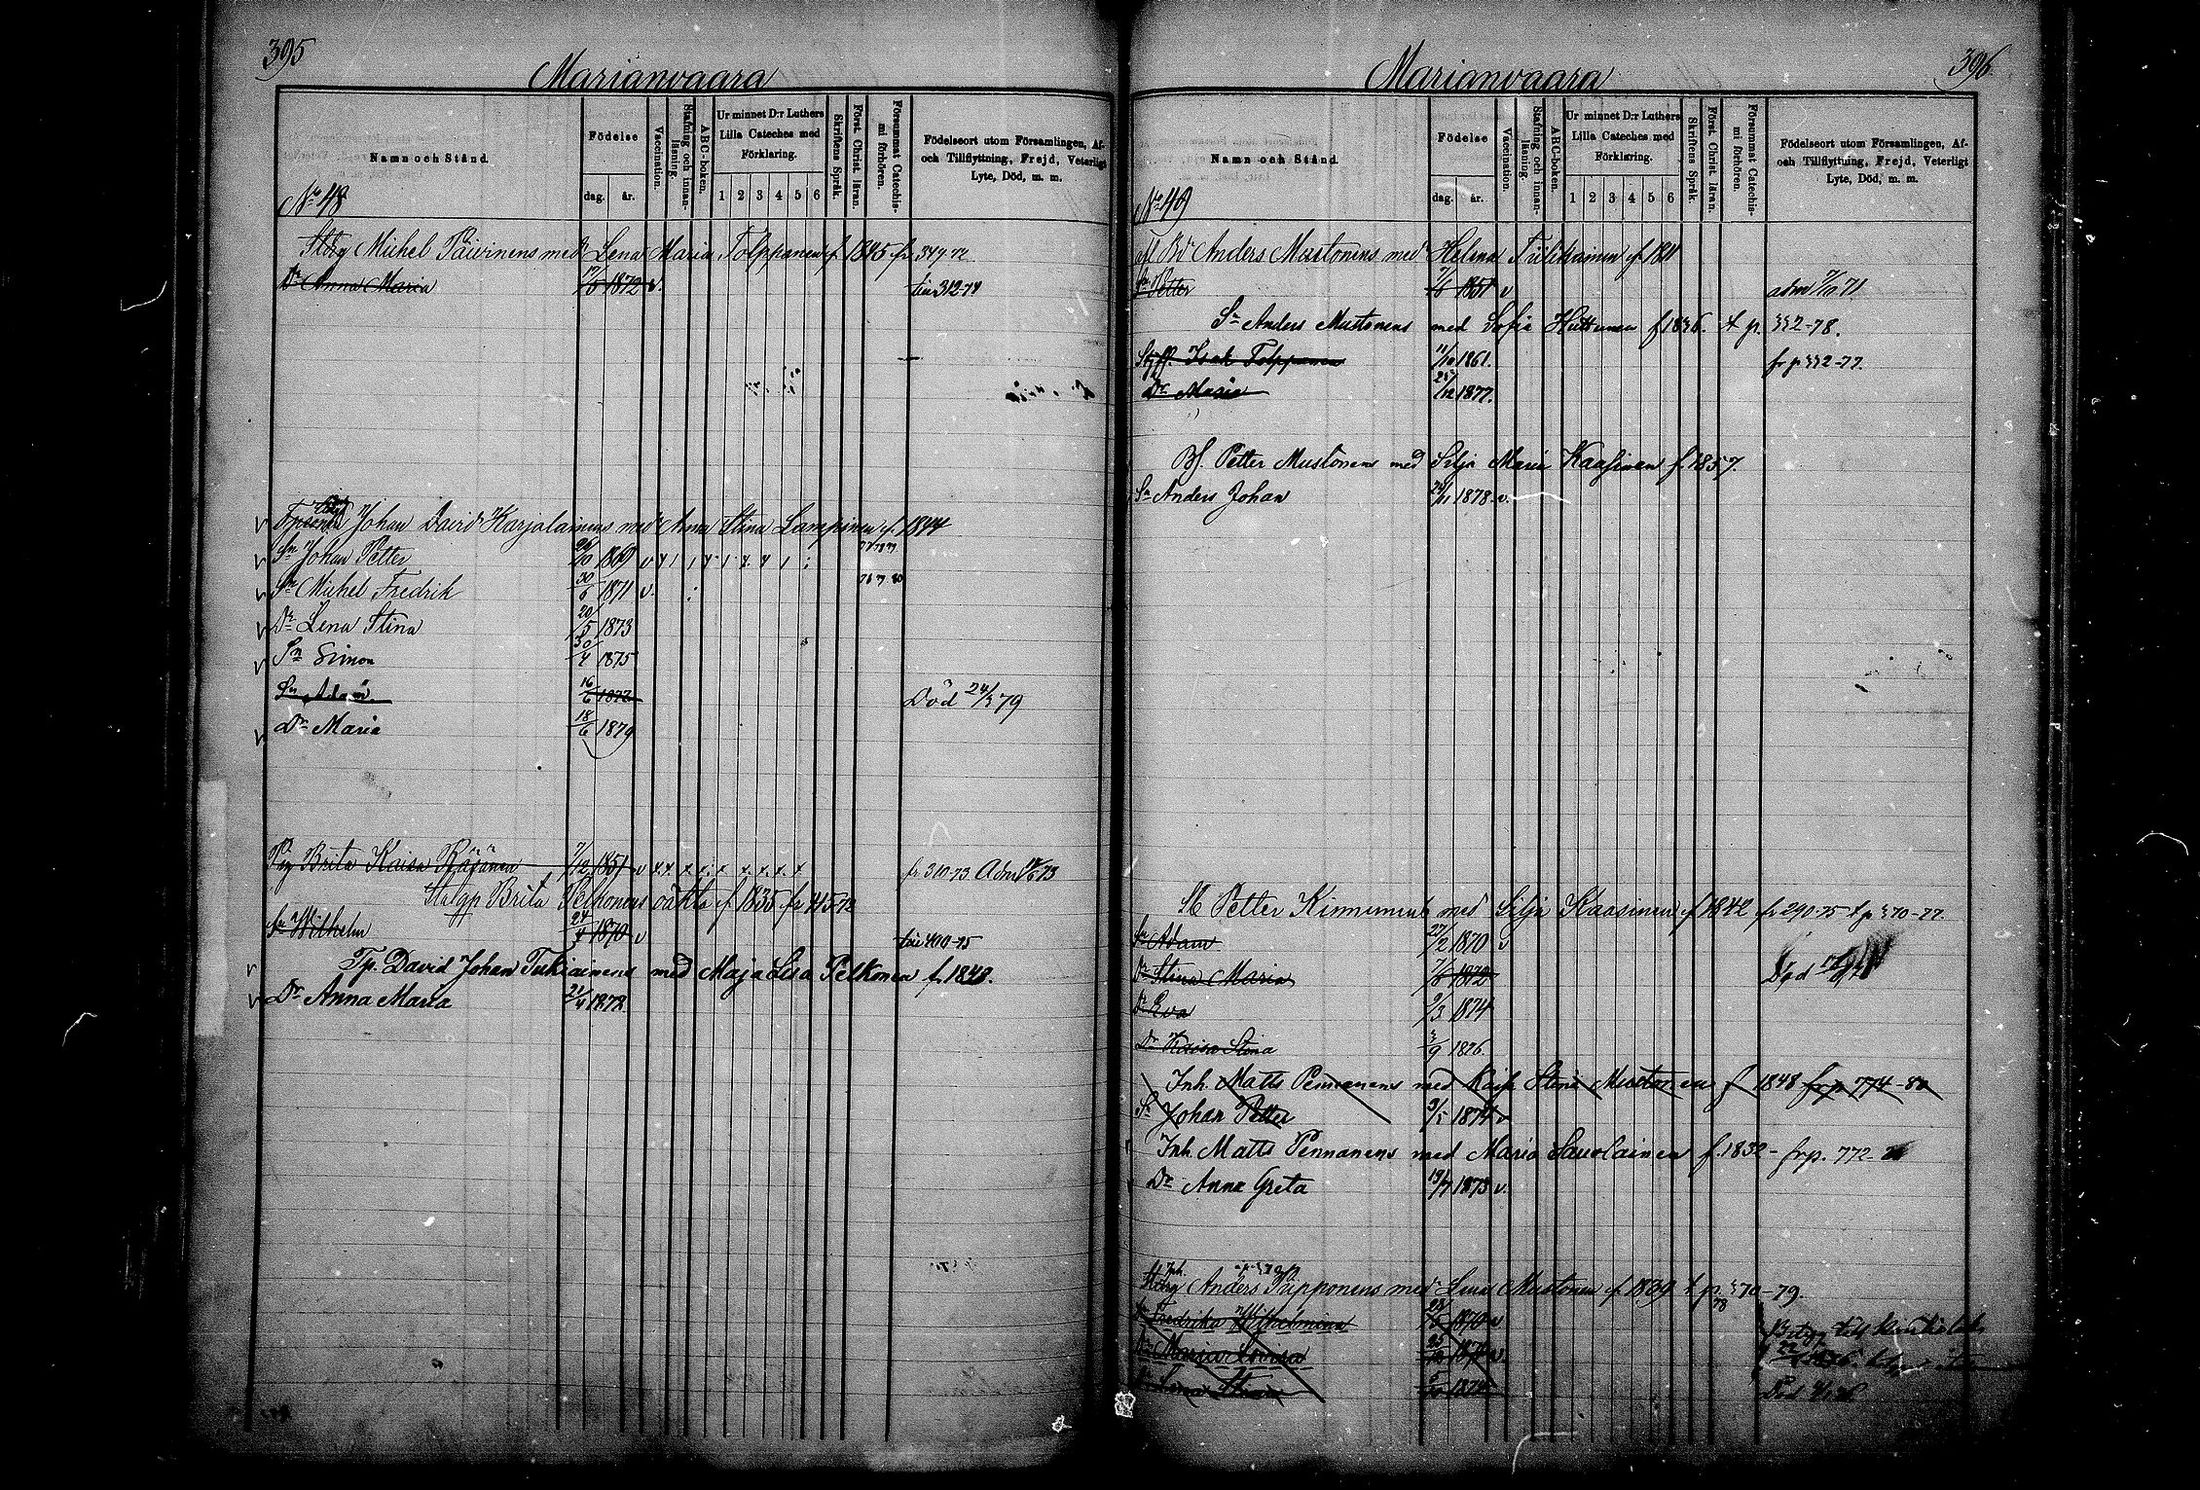 395
Marianvaara
Namn och Stånd.
Födelse
dag. år.
Vaccination.
Stafning och innan-läsning.
ABC-boken.
Ur minnet D:r Luthers
Lilla Cateches med
Förklaring.
1 2 3 4 5 6
Skriftens Språk.
Först. Christ. läran.
Försummat Catechis-mi förhören.
Födelseort utom Församlingen, Af-
och Tillflyttning, Frejd, Veterligt
Lyte, Död, m. m.
No 48
Michel Päivinens med Lena Maria Tolppanen f 1845 fr 347-72
Dr Anna Maria 17/5 1872 v. 312-74
Johan David Karjalainens med Anna Stina Lampinen f. 1844
Sn Johan Petter 1869 v 77 78 79
Sn Michel Fredrik 30/6 1871 v.
Dr Lena Stina 20/5 1873
Sn Simon 30/4 1875
Sn Adam 16/6 Död 24/3 79
Dr Maria 18/6 1879
Brita Kaisa Räsänen 7/12 1851 v x x x x x x x x x fr 310-73 Adm 73
Brita Pelkonens oäkta f 1835 fr 415-72
Sn Wilhelm 24/4 1870 v 400-75
Tp. David Johan Tukiainens med Maja Lisa Pelkonen f. 1848.
Dr Anna Maria 21/4 1878
396
Marianvaara
Namn och Stånd.
Födelse
dag. år.
Vaccination.
Stafning och innan-läsning.
ABC-boken.
Ur minnet D:r Luthers
Lilla Cateches med
Förklaring.
1 2 3 4 5 6
Skriftens Språk.
Först. Christ. läran.
Försummat Catechis-mi förhören.
Födelseort utom Församlingen, Af-
och Tillflyttning, Frejd, Veterligt
Lyte, Död, m. m.
No 49
Anders Mustonens med Helena Tiilikainen f 1811
Sn Petter 7/6 1851 v adm 7/10 71
Sn Anders Mustonens med Sofia Huttunen f 1836. t p. 332-78.
Isak Tolppanen 11/10 1861. fr p 332-77.
Dr Maria 25/12 1877.
Bf. Petter Mustonens med Silja Maria Kaasinen f. 1857.
Sn Anders Johan 1878 v.
Petter Kinnunens med Silja Kaasinen f 1842 fr 290-75 t p 370-77.
Sn Adam 27/2 1870 v
Dr Stina Maria 7/6 1872 Död
Dr Eva 9/3 1874
Dr Kaisa Stina 3/9 1876.
Inh. Matts Pennanens med Kaisa Stina Mustonen f 1848 fr p 774-80
Sn Johan Petter 3/5 1874 v
Inh. Matts Pennanens med Maria Savolainen f. 1832 - frp. 772-
Dr Anna Greta 19/7 1873 v.
Inh.
Anders Papponens med Lena Mustonen f. 1839 t p. 370-79.
Fredrika Wilhelmina 1870 v
Dr Maria Lovisa v.
Lena Stina Död